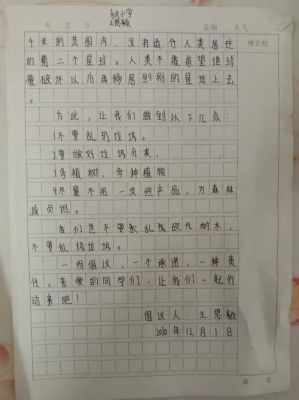 年 月 日 星期 天气
千米的范围内，没有适合人类居住
的第二个星球。人类不能希望地球
被破坏以后再移居到别的星球上去。
为此，让我们做到以下几点：
1不要乱扔垃圾。
2要做好垃圾分类。
3多植树，多种植物
4尽量不用一次性产品，为森林
减负担。
我们也不要乱砍伐树木，
不要乱扔垃圾。
一份倡议，一个承诺，一种责
任。亲爱的同学们，让我们一起行
动来吧！
倡议人：王思敏
2020年12月1日
第 页